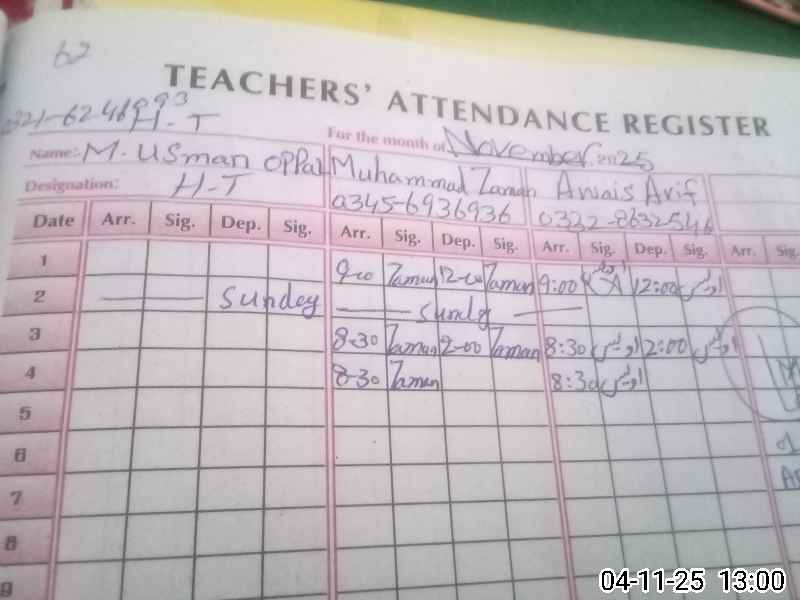 62
TEACHERS' ATTENDANCE REGISTER
H-T
For the month of November 2025
Name: M. Usman Oppal Muhammad Zaman Awais Arif
Designation: H-T 0345-6936936 0332-8632546
Date Arr. Sig. Dep. Sig. Arr. Sig. Dep. Sig. Arr. Sig. Dep. Sig. Arr. Sig.
1 9-00 Zaman 12-00 Zaman 9:00 اویس 12:00 اویس
2 Sunday Sundy
3 8-30 Zaman 2-00 Zaman 8:30 اویس 2:00 اویس
4 8-30 Zaman 8:30 اویس
5
6
7
8
9
04-11-25 13:00